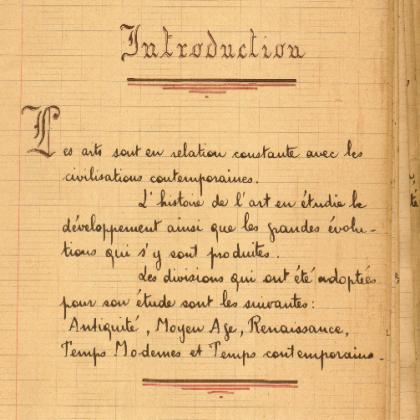 Introduction
Les arts sont en relation constante avec les
civilisations contemporaines.
L'histoire de l'art en étudie le
développement ainsi que les grandes évolu-
tions qui s'y sont produites.
Les divisions qui ont été adoptées
pour son étude sont les suivantes:
Antiquité, Moyen Age, Renaissance,
Temps Modernes et Temps contemporains.